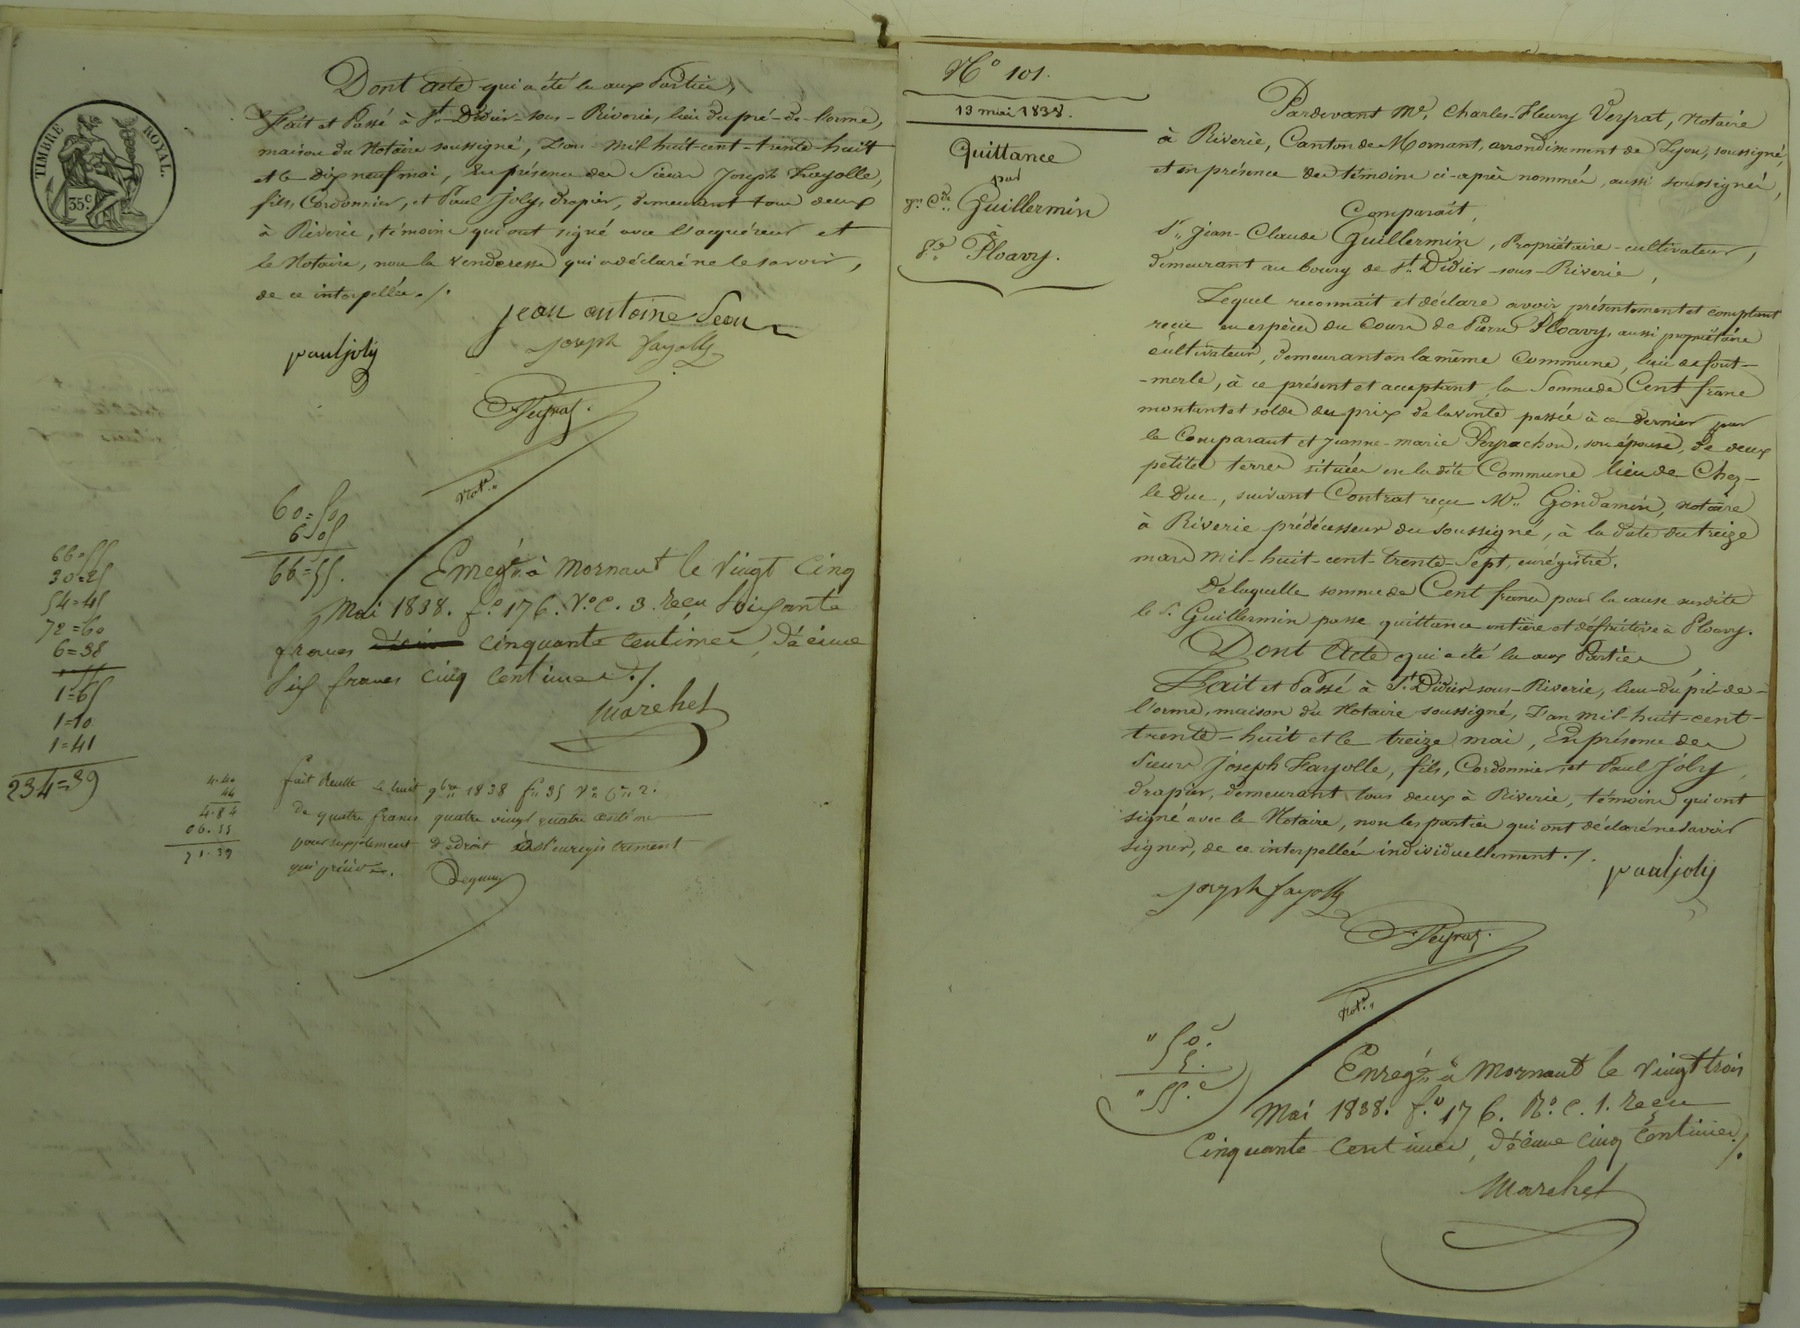 TIMBRE ROYAL.
35c.
Dont acte qui a été lu aux Parties,
Fait et Passé à St. Didier-sous-Riverie, lieu du pré-de-lorme,
maison du Notaire soussigné, L'an mil huit-cent-trente-huit
et le dix neuf mai, En présence des Sieurs Joseph Fayolle,
fils, Cordonnier, et Paul Joly, drapier, demeurant tous deux
à Riverie, témoins qui ont signé avec l'acquéreur et
le Notaire, non la venderesse qui a déclaré ne le savoir,
de ce interpellée ./.
jean antoine Seon
pauljoly
joseph fayolle
Veyrat.
Not.
60=50
6 05
66=55.
66=55
30=25
54=45
72=60
6=38
1=65
1=10
1=41
234=39
Enregé à Mornant le Vingt Cinq
Mai 1838. f.o 176. V.o C. 3. reçu Soixante
francs cinquante centimes, décime
Six francs cinq centimes ./.
Marchet
4.40
44
4.84
66.55
71.39
fait Recette le huit 9bre 1838 f.o 35 V.o C.e 2.
de quatre francs quatre vingt quatre centimes
pour supplément de droit à l'enregistrement
qui précède.
N.o 101.
13 mai 1838.
Quittance
par
Jn. Cde. Guillermin
à
P.re Ploavy.
Pardevant Me. Charles-Fleury Veyrat, Notaire
à Riverie, Canton de Mornant, arrondissement de Lyon, soussigné,
et en présence des témoins ci-après nommés, aussi soussignés,
Comparait,
Sr. Jean-Claude Guillermin, Propriétaire-cultivateur,
demeurant au bourg de St. Didier-sous-Riverie,
Lequel reconnait et déclare avoir présentement et comptant
reçu en espèces du cours de Pierre Ploavy, aussi propriétaire
cultivateur, demeurant en la même Commune, lieu de font-
-merle, à ce présent et acceptant, la Somme de Cent francs
montant et solde du prix de la vente passée à ce dernier par
le Comparant et Jeanne-marie Peyrachon, son épouse, de deux
petites terres situées en la dite Commune lieu de Chez-
le Duc, suivant Contrat reçu Me. Gondamin, notaire
à Riverie prédécesseur du soussigné, à la date du treize
mars mil-huit-cent-trente-Sept, enrégistré.
De laquelle somme de Cent francs pour la cause susdite
le Sr. Guillermin passe quittance entière et définitive à Ploavy.
Dont Acte qui a été lu aux Parties
Fait et Passé à St. Didier-sous-Riverie, lieu-du pré-de-
l'orme, maison du Notaire soussigné, L'an mil-huit-cent-
trente-huit et le treize mai, En présence des
Sieurs Joseph Fayolle, fils, Cordonnier, et Paul Joly,
drapier, demeurant tous deux à Riverie, témoins qui ont
signé avec le Notaire, non les parties qui ont déclaré ne savoir
signer, de ce interpellées individuellement ./.
pauljoly
joseph fayolle
Veyrat.
Not.
" 50.c
5.
" 55.c
Enregé à Mornant le vingt trois
Mai 1838. f.o 176. R.o C. 1. reçu
Cinquante centimes, décime cinq centimes ./.
Marchet